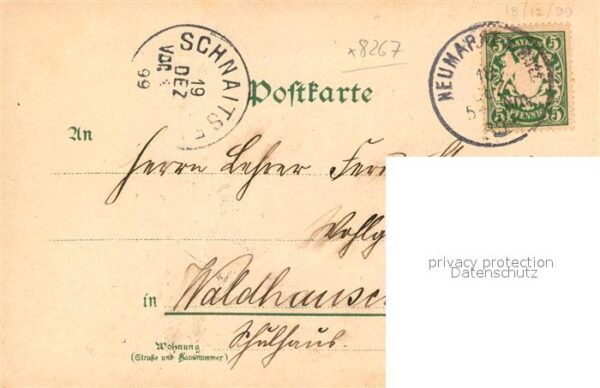 18/12/99
*8267
SCHNAITS
19
DEZ
VOR.
99
NEUMAR
BAYERN
5 5
PFENNIG
Postkarte
An
Herrn Lehrer
Wohlg
privacy protection
Datenschutz
in Waldhausen
Schulhaus.
Wohnung
(Straße und Hausnummer)